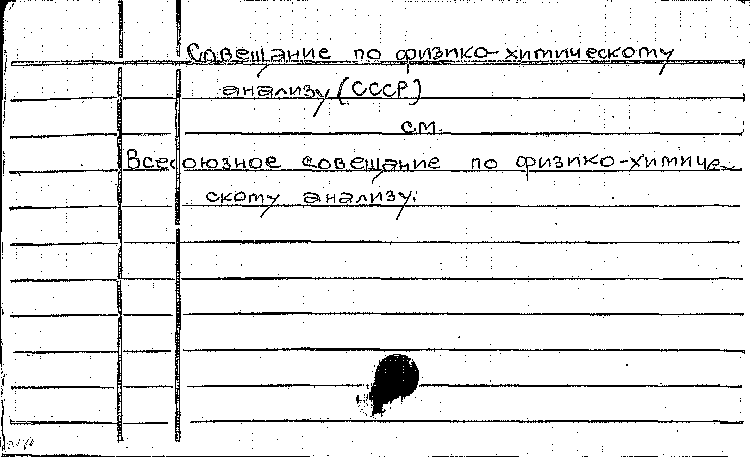 Совещание по физико-химическому
анализу (СССР)
см.
Всесоюзное совещание по физико-химиче-
скому анализу.